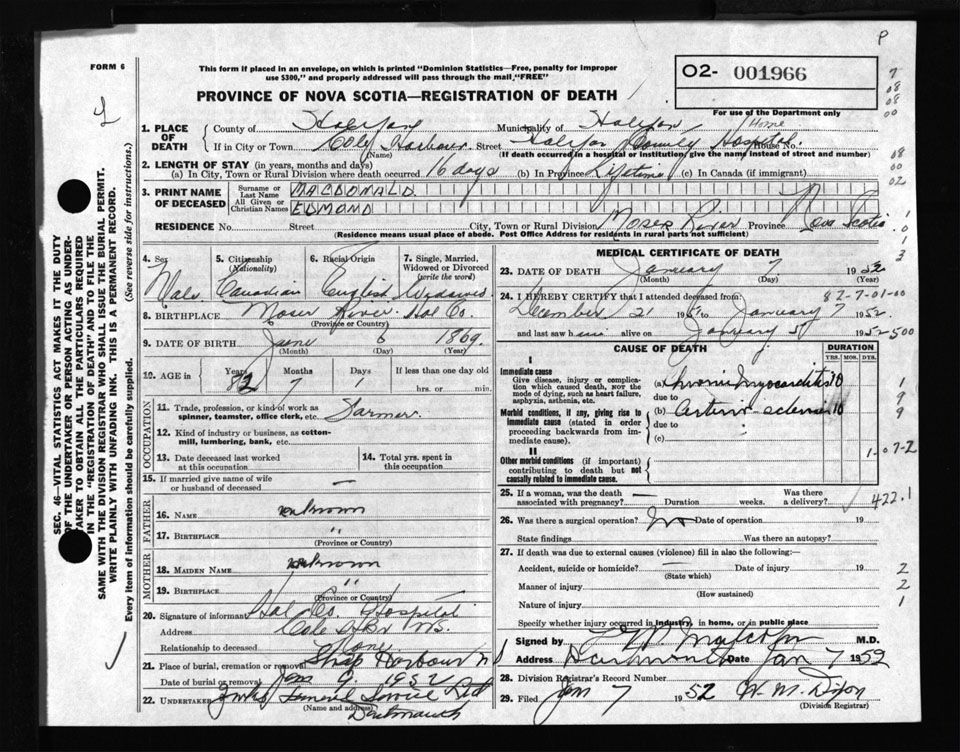 P
FORM 6
This form if placed in an envelope, on which is printed "Dominion Statistics—Free, penalty for improper
use $300," and properly addressed will pass through the mail, "FREE"
O2- 001966
PROVINCE OF NOVA SCOTIA—REGISTRATION OF DEATH
For use of the Department only
1. PLACE OF DEATH
County of Halifax Municipality of Halifax
If in City or Town Cole Harbour Street Halifax County Hospital House No. Home
(Name) (If death occurred in a hospital or institution, give the name instead of street and number)
2. LENGTH OF STAY (in years, months and days)
(a) In City, Town or Rural Division where death occurred 16 days (b) In Province Lifetime (c) In Canada (if immigrant)
3. PRINT NAME OF DECEASED
Surname or Last Name MACDONALD
All Given or Christian Names EDMOND
RESIDENCE No. Street City, Town or Rural Division Moser River Province Nova Scotia
(Residence means usual place of abode. Post Office Address for residents in rural parts not sufficient)
4. Sex Male
5. Citizenship (Nationality) Canadian
6. Racial Origin English
7. Single, Married, Widowed or Divorced (write the word) Widowed
8. BIRTHPLACE Moser River Hal Co.
(Province or Country)
9. DATE OF BIRTH June 6 1869
(Month) (Day) (Year)
10. AGE in Years 82 Months 7 Days 1 If less than one day old
hrs. or min.
OCCUPATION
11. Trade, profession, or kind of work as spinner, teamster, office clerk, etc. Farmer.
12. Kind of industry or business, as cotton-mill, lumbering, bank, etc.
13. Date deceased last worked at this occupation
14. Total yrs. spent in this occupation
15. If married give name of wife or husband of deceased —
FATHER
16. NAME unknown
17. BIRTHPLACE "
(Province or Country)
MOTHER
18. MAIDEN NAME unknown
19. BIRTHPLACE "
(Province or Country)
20. Signature of informant Hal Co. Hospital
Address Cole Hbr NS.
Relationship to deceased None
21. Place of burial, cremation or removal Ship Harbour
Date of burial or removal Jan 9. 1952
22. UNDERTAKER Funeral Service Ltd
(Name and address) Dartmouth
MEDICAL CERTIFICATE OF DEATH
23. DATE OF DEATH January 7 1952
(Month) (Day)
24. I HEREBY CERTIFY that I attended deceased from: 82-7-01-00
December 21 1951 to January 7 1952.
and last saw him alive on January 1952 500
CAUSE OF DEATH
DURATION
YRS. MOS. DYS.
I
Immediate cause
Give disease, injury or complication which caused death, NOT the mode of dying, such as heart failure, asphyxia, asthenia, etc.
(a) Chronic Myocarditis 10
due to
Morbid conditions, if any, giving rise to immediate cause (stated in order proceeding backwards from immediate cause).
(b) Arterio-sclerosis 10
due to
(c)
II
Other morbid conditions (if important) contributing to death but not causally related to immediate cause.
1-07-2
25. If a woman, was the death associated with pregnancy? — Duration weeks. Was there a delivery?
422.1
26. Was there a surgical operation? No Date of operation 19
State findings Was there an autopsy?
27. If death was due to external causes (violence) fill in also the following:—
Accident, suicide or homicide? — Date of injury 19
(State which)
Manner of injury
(How sustained)
Nature of injury
Specify whether injury occurred in industry, in home, or in public place
Signed by M.D.
Address Dartmouth Date Jan 7 1952
28. Division Registrar's Record Number
29. Filed Jan 7 1952 W. M. Dixon
(Division Registrar)
SEC. 46—VITAL STATISTICS ACT MAKES IT THE DUTY
OF THE UNDERTAKER OR PERSON ACTING AS UNDER-
TAKER TO OBTAIN ALL THE PARTICULARS REQUIRED
IN THE "REGISTRATION OF DEATH" AND TO FILE THE
SAME WITH THE DIVISION REGISTRAR WHO SHALL ISSUE THE BURIAL PERMIT.
WRITE PLAINLY WITH UNFADING INK. THIS IS A PERMANENT RECORD.
Every item of information should be carefully supplied. (See reverse side for instructions.)
7
08
08
00
08
00
02
1
0
1
3
1
9
9
2
2
1